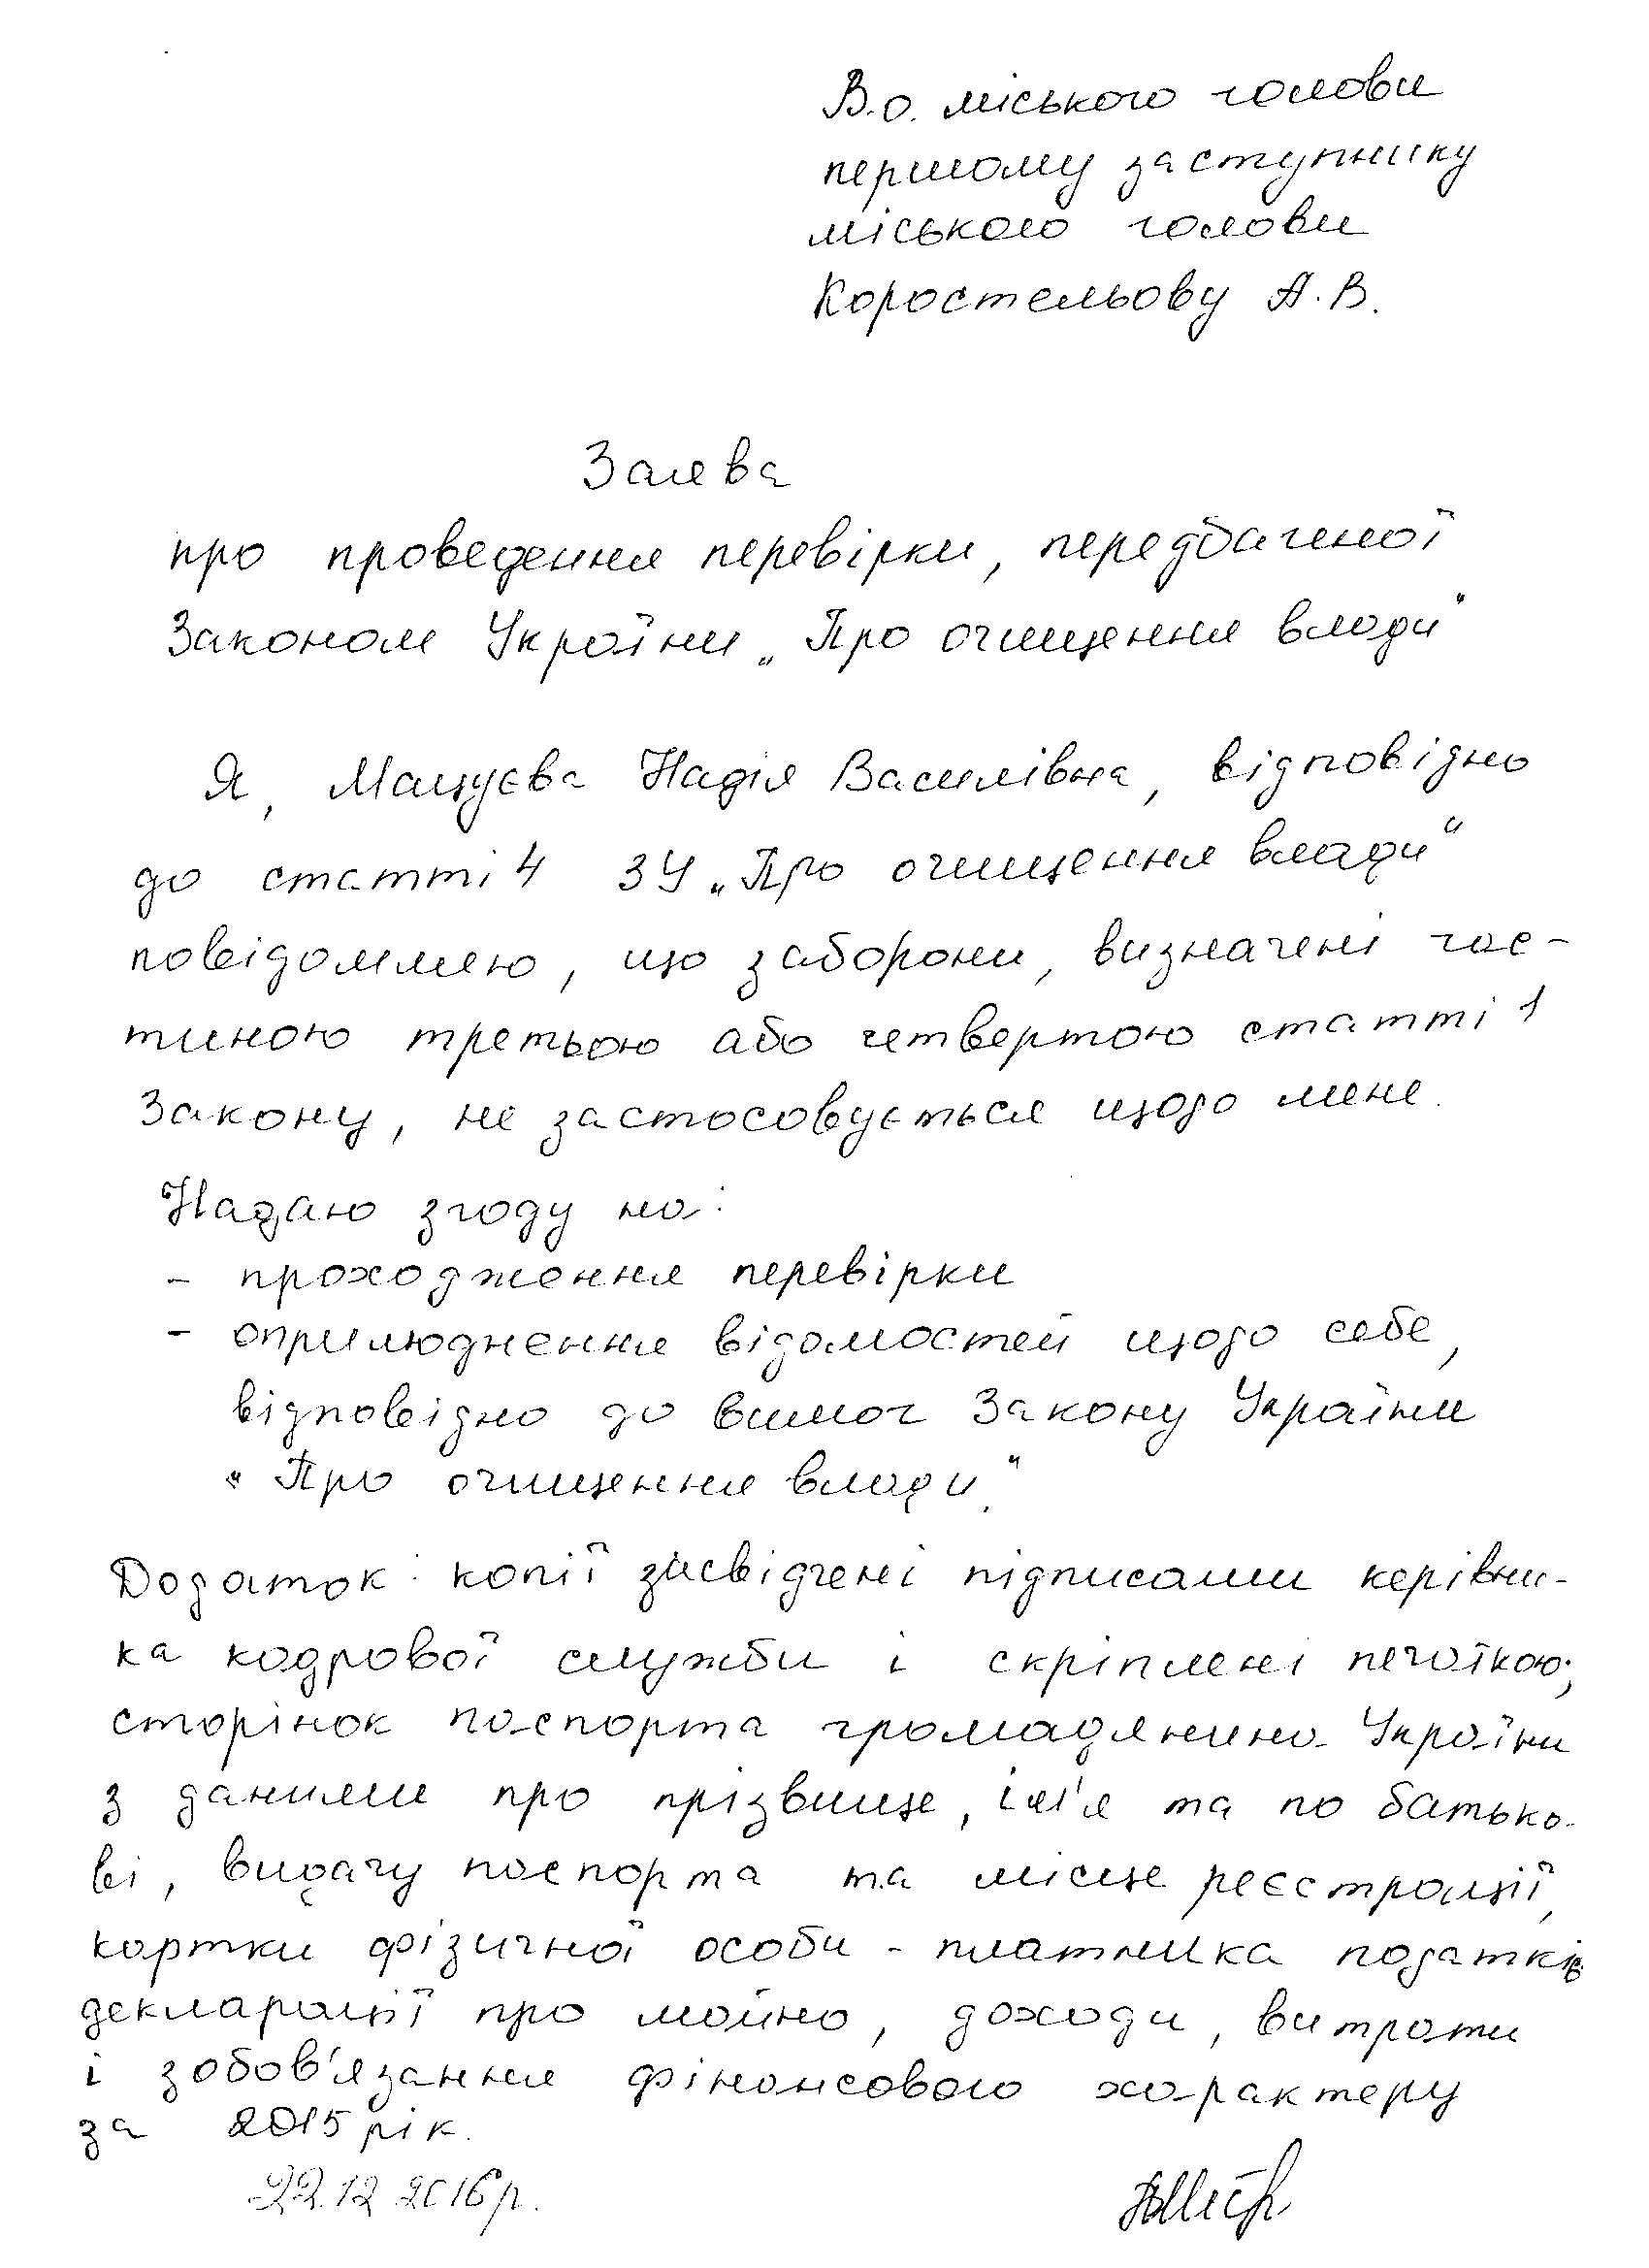 В.о. міського голови
першому заступнику
міського голови
Коростельову А.В.
Заява
про проведення перевірки, передбаченої
Законом України „Про очищення влади"
Я, Мацуєва Надія Василівна, відповідно
до статті 4 ЗУ „Про очищення влади"
повідомляю, що заборони, визначені час-
тиною третьою або четвертою статті 1
Закону, не застосовується щодо мене.
Надаю згоду на:
- проходження перевірки
- оприлюднення відомостей щодо себе,
відповідно до вимог Закону України
"Про очищення влади."
Додаток: копії засвідчені підписами керівни-
ка кадрової служби і скріплені печаткою;
сторінок паспорта громадянина України
з даними про прізвище, ім'я та по батько-
ві, видачу паспорта та місце реєстрації,
картки фізичної особи - платника податків
декларації про майно, доходи, витрати
і зобов'язання фінансового характеру
за 2015 рік.
22.12.2016р.